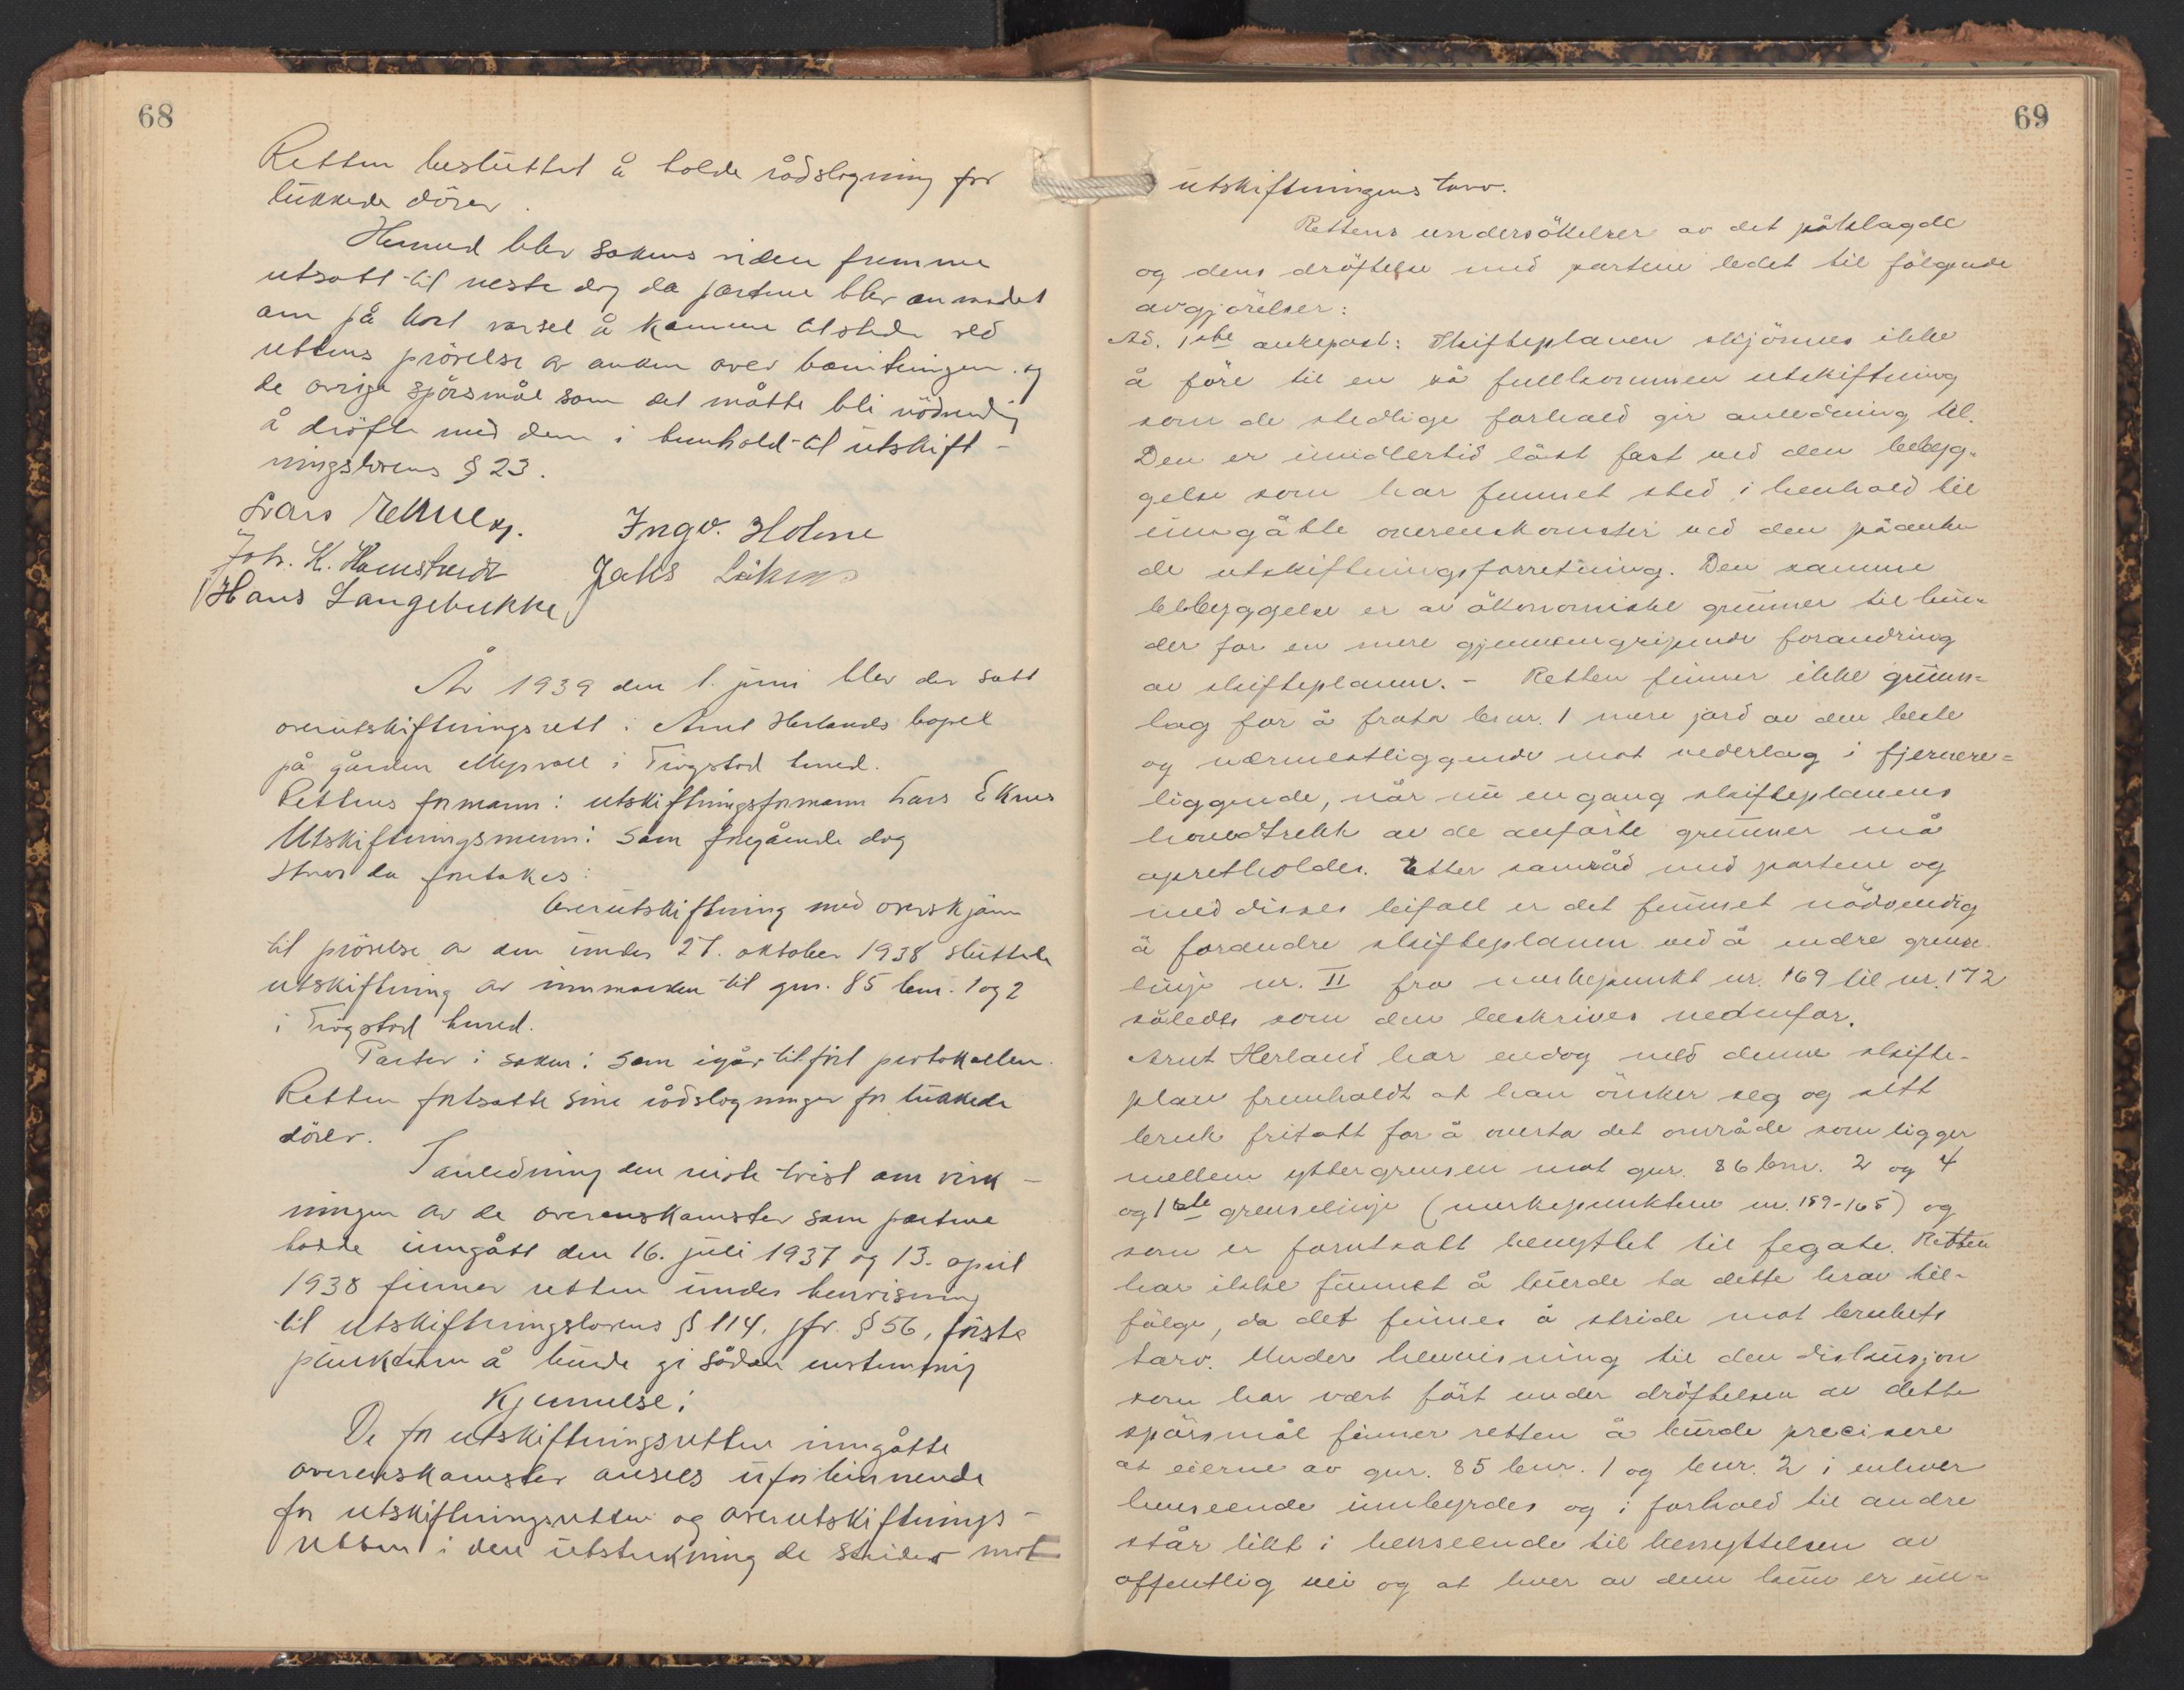 68
Retten besluttet å holde rådslagning for
lukkede dörer.
Hermed blev sakens videre fremme
utsatt til neste dag da partene blev anmodet
om på kort varsel å komme tilstede ved
rettens prövelse av anken over bonitering og
de övrige spörsmål som det måtte bli nödvendig
å dröfte med dem i henhold til utskift-
ningslovens § 23.
Lars Ekrue
Ingv. Holme
Joh. K. Hamstvedt
Jahs
Hans Langebukke
År 1939 den 1. juni blev der satt
overutskiftningsrett i Arnt Herlands bopel
på gården Mysvoll i Trögstad herred.
Rettens formann: utskiftningsformann Lars Ekrue
Utskiftningsmenn: Som foregående dag
Hvor da foretakes:
Overutskiftning med overskjönn
til prövelse av den under 27. oktober 1938 sluttede
utskiftning av innmarken til gnr. 85 bnr. 1 og 2
i Trögstad herred.
Parter i saken: Som igår tilfört protokollen.
Retten fortsatte sine rådslagninger for lukkede
dörer.
I anledning den reiste tvist om virk-
ningen av de overenskomster som partene
hadde inngått den 16. juli 1937 og 13. april
1938 finner retten under henvisning
til utskiftningslovens § 114, jfr. § 56, förste
punktum å burde gi sådan enstemmig
Kjennelse:
De for utskiftningsretten inngåtte
overenskomster ansees uforbinnende
for utskiftningsretten og overutskiftnings-
retten i den utstrekning de strider mot
69
utskiftningens tarv.
Rettens undersökelser av det påklagde
og dens dröftelse med partene ledet til fölgende
avgjörelser:
Ad. 1ste ankepost: Skifteplanen skjönnes ikke
å före til en så fullkommen utskiftning
som de stedlige forhold gir anledning til.
Den er imidlertid låst fast ved den bebyg-
gelse som har funnet sted i henhold til
inngåtte overenskomster ved den påanke
de utskiftningsforretning. Den samme
bebyggelse er av ökonomiske grunner til hin-
der for en mere gjennemgripende forandring
av skifteplanen. - Retten finner ikke grunn-
lag for å frata bnr. 1 mere jord av den beste
og nærmestliggende mot vederlag i fjernere-
liggende, når nu engang skifteplanens
hovedtrekk av de anförte grunner må
opretholdes. Etter samråd med partene og
med disses bifall er det funnet nödvendig
å forandre skifteplanen ved å endre grense
linje nr. II fra merkepunkt nr. 169 til nr. 172
således som den beskrives nedenfor.
Arnt Herland har endog med denne skifte-
plan fremholdt at han önsker seg og sitt
bruk fritatt for å overta det område som ligger
mellem yttergrensen mot gnr. 86 bnr. 2 og 4
og 1ste grenselinje (merkepunktene nr. 159-165) og
som er forutsatt benyttet til fegate. Retten
har ikke funnet å burde ta dette krav til-
fölge, da det finnes å stride mot brukets
tarv. Under henvisning til den diskusjon
som har vært fört under dröftelsen av dette
spörsmål finner retten å burde precisere
at eierne av gnr. 85 bnr. 1 og bnr. 2 i enhver
henseende innbyrdes og i forhold til andre
står likt i henseende til benyttelsen av
offentlig vei og at hver av dem kun er un-